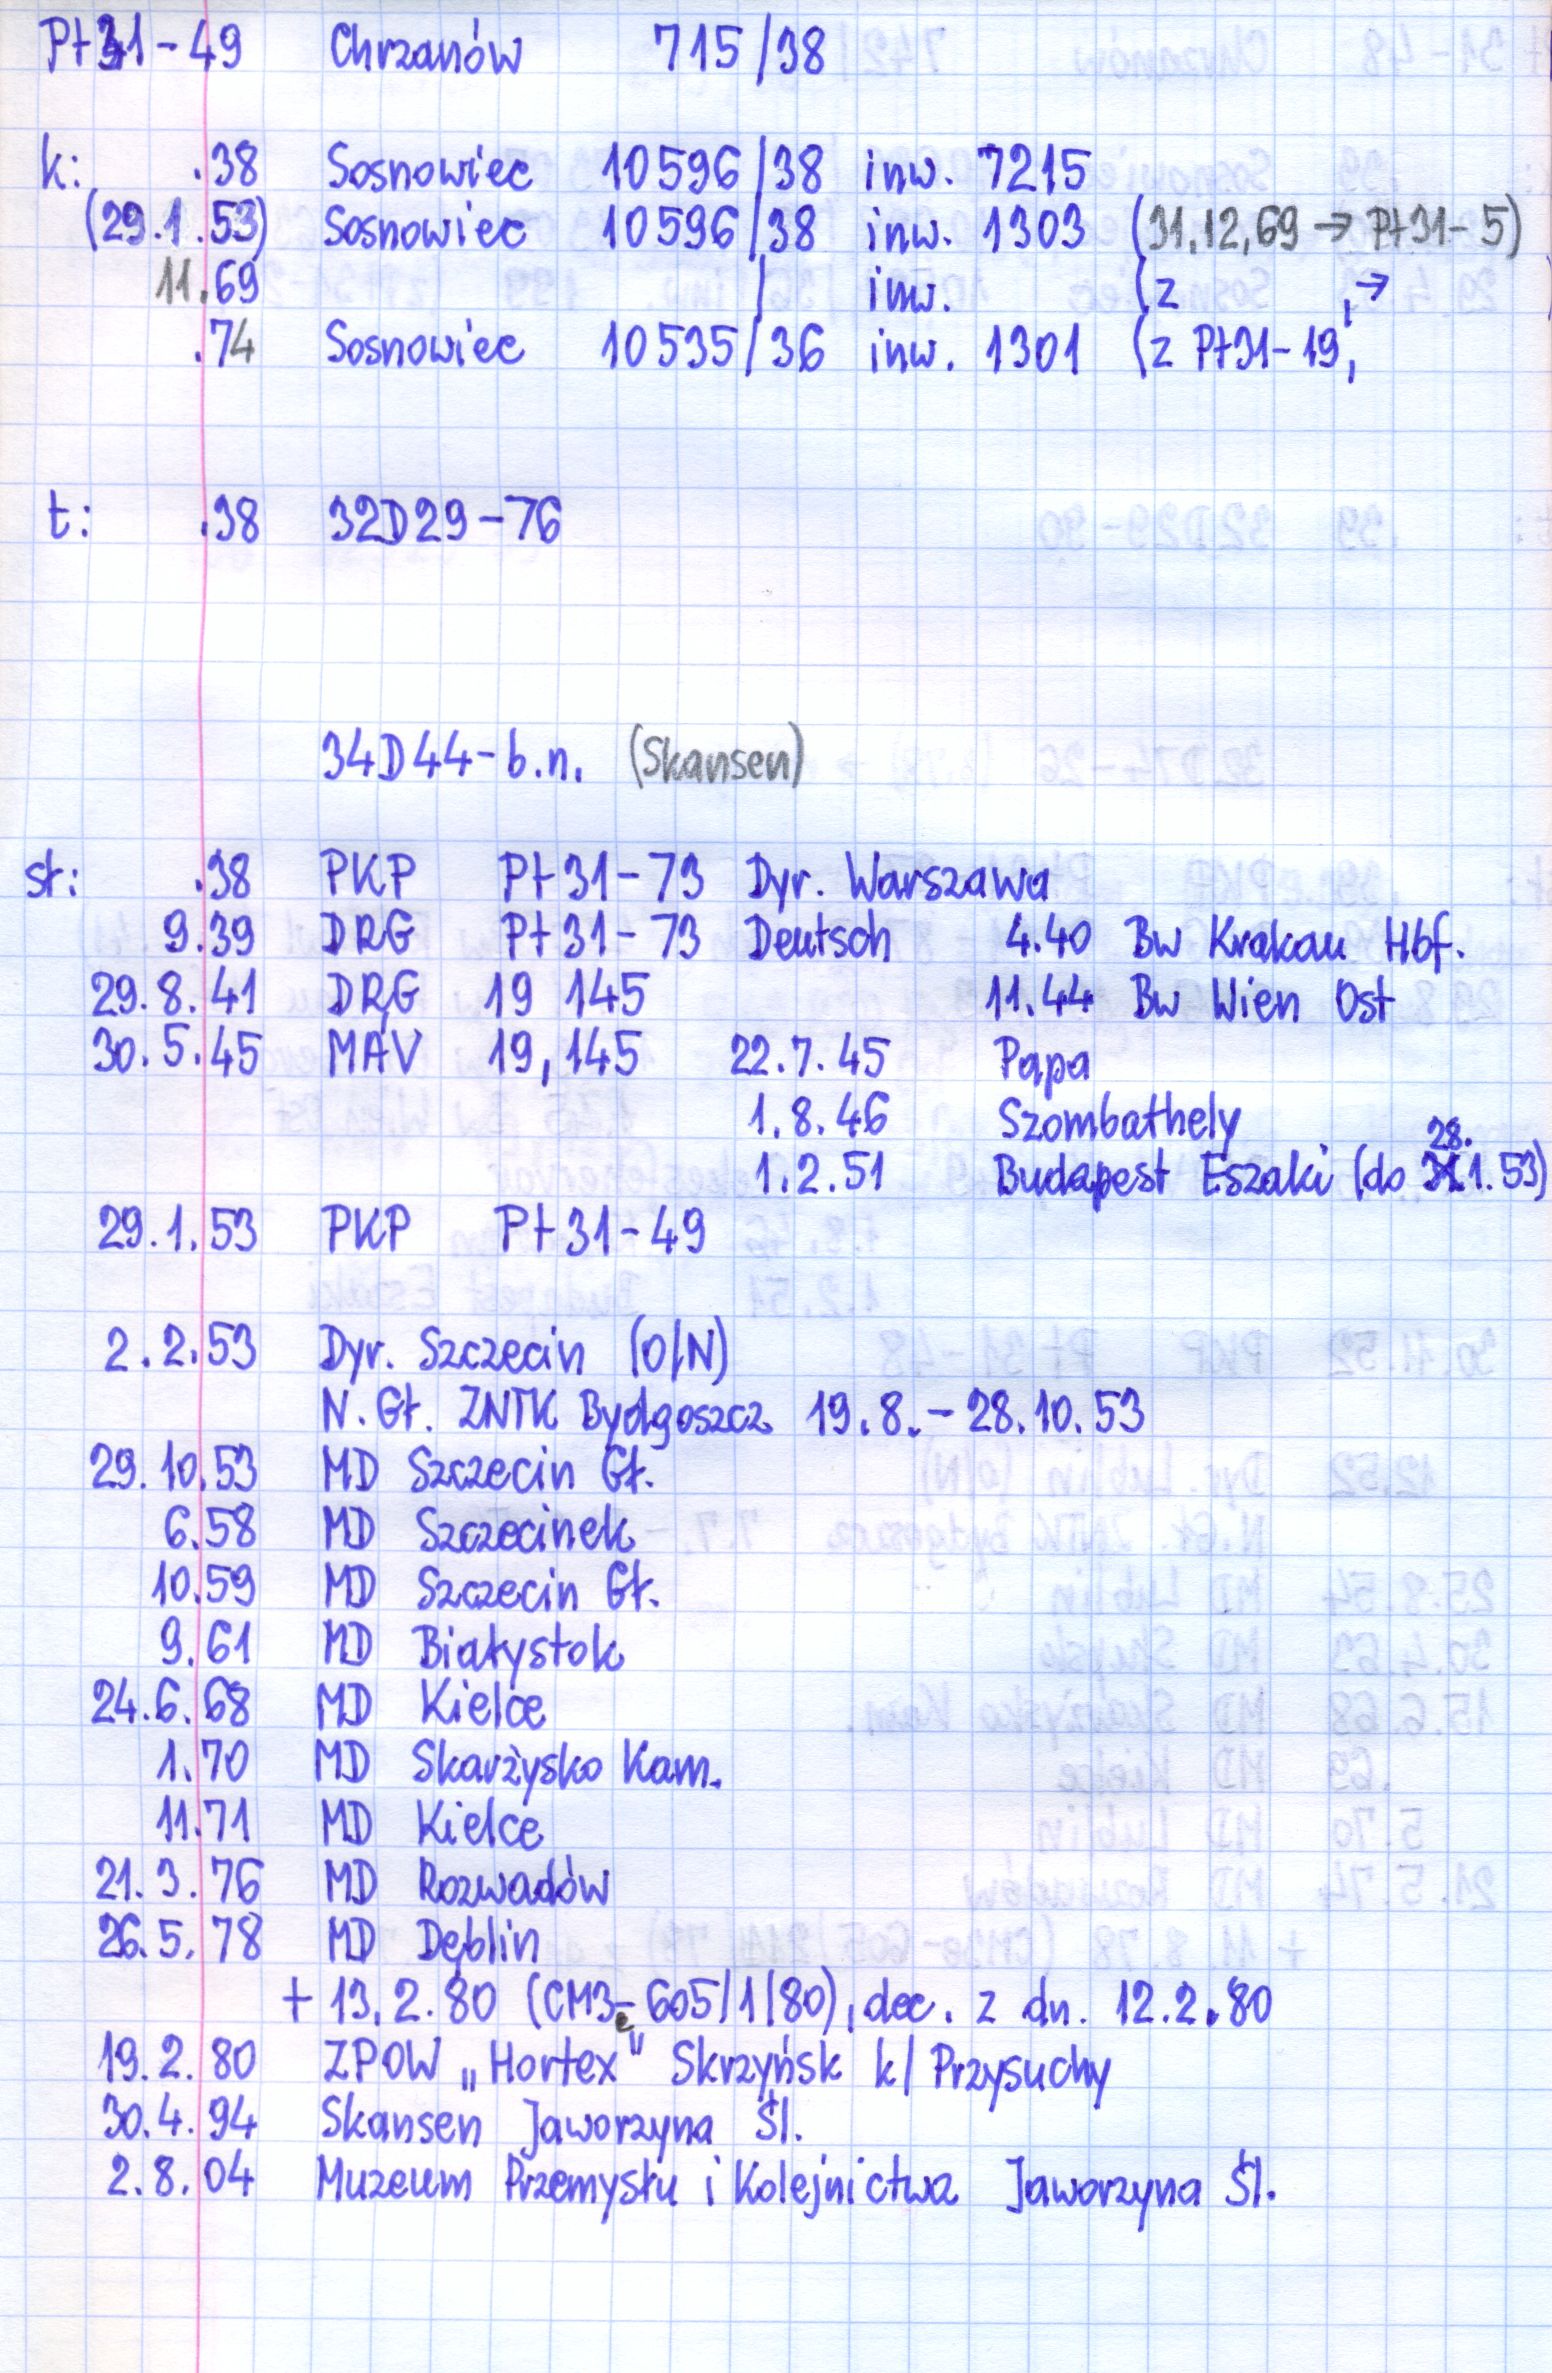 Pt31-49 Chrzanów 715/38
k: .38 Sosnowiec 10596/38 inw. 7215
(29.1.53) Sosnowiec 10596/38 inw. 1303 (31,12,69 → Pt31-5)
11.69 / inw. (z , → )
.74 Sosnowiec 10535/36 inw. 1301 (z Pt31-19,
t: .38 32D29-76
34D44-b.n. (Skansen)
st: .38 PKP Pt31-73 Dyr. Warszawa
9.39 DRG Pt31-73 Deutsch 4.40 Bw Krakau Hbf.
29.8.41 DRG 19 145 11.44 Bw Wien Ost
30.5.45 MÁV 19,145 22.7.45 Papa
1.8.46 Szombathely
28.
1.2.51 Budapest Eszaki (do 31.1.53)
29.1.53 PKP Pt31-49
2.2.53 Dyr. Szczecin (O/N)
N.Gł. ZNTK Bydgoszcz 19.8.-28.10.53
29.10.53 MD Szczecin Gł.
6.58 MD Szczecinek
10.59 MD Szczecin Gł.
9.61 MD Białystok
24.6.68 MD Kielce
1.70 MD Skarżysko Kam.
11.71 MD Kielce
21.3.76 MD Rozwadów
26.5.78 MD Dęblin
+ 13.2.80 (CM3e-605/1/80), dec. z dn. 12.2.80
19.2.80 ZPOW „Hortex" Skrzyńsk k/Przysuchy
30.4.94 Skansen Jaworzyna Śl.
2.8.04 Muzeum Przemysłu i Kolejnictwa Jaworzyna Śl.